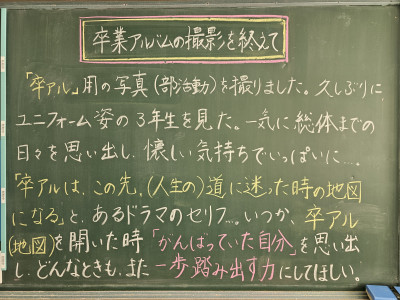 卒業アルバムの撮影を終えて
「卒アル」用の写真(部活動)を撮りました。久しぶりに
ユニフォーム姿の3年生を見た。一気に総体までの
日々を思い出し、懐しい気持ちでいっぱいに…。
「卒アルは、この先、(人生の)道に迷った時の地図
になる」と、あるドラマのセリフ…。いつか、卒アル
(地図)を開いた時「がんばっていた自分」を思い出
し、どんなときも、また一歩踏み出す力にしてほしい。